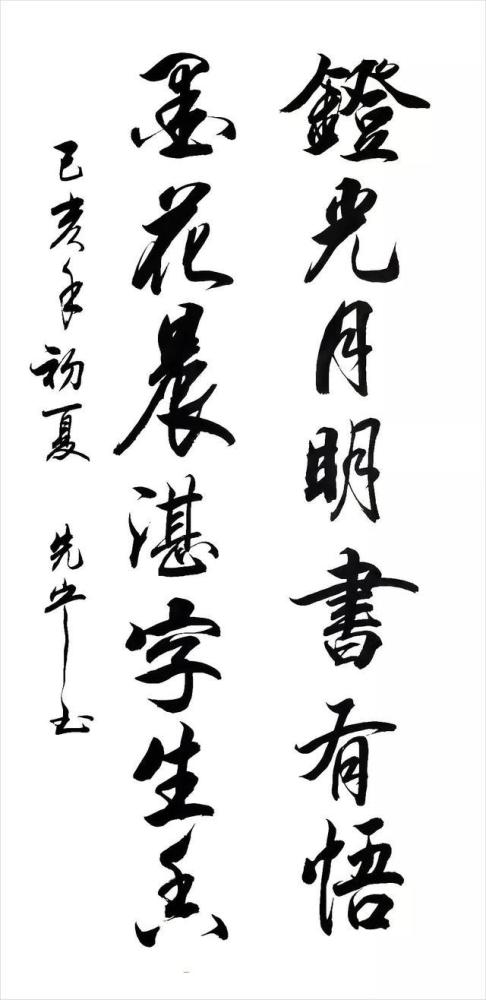 鐙光月明書有悟
墨花晨湛字生香
己亥年初夏 先